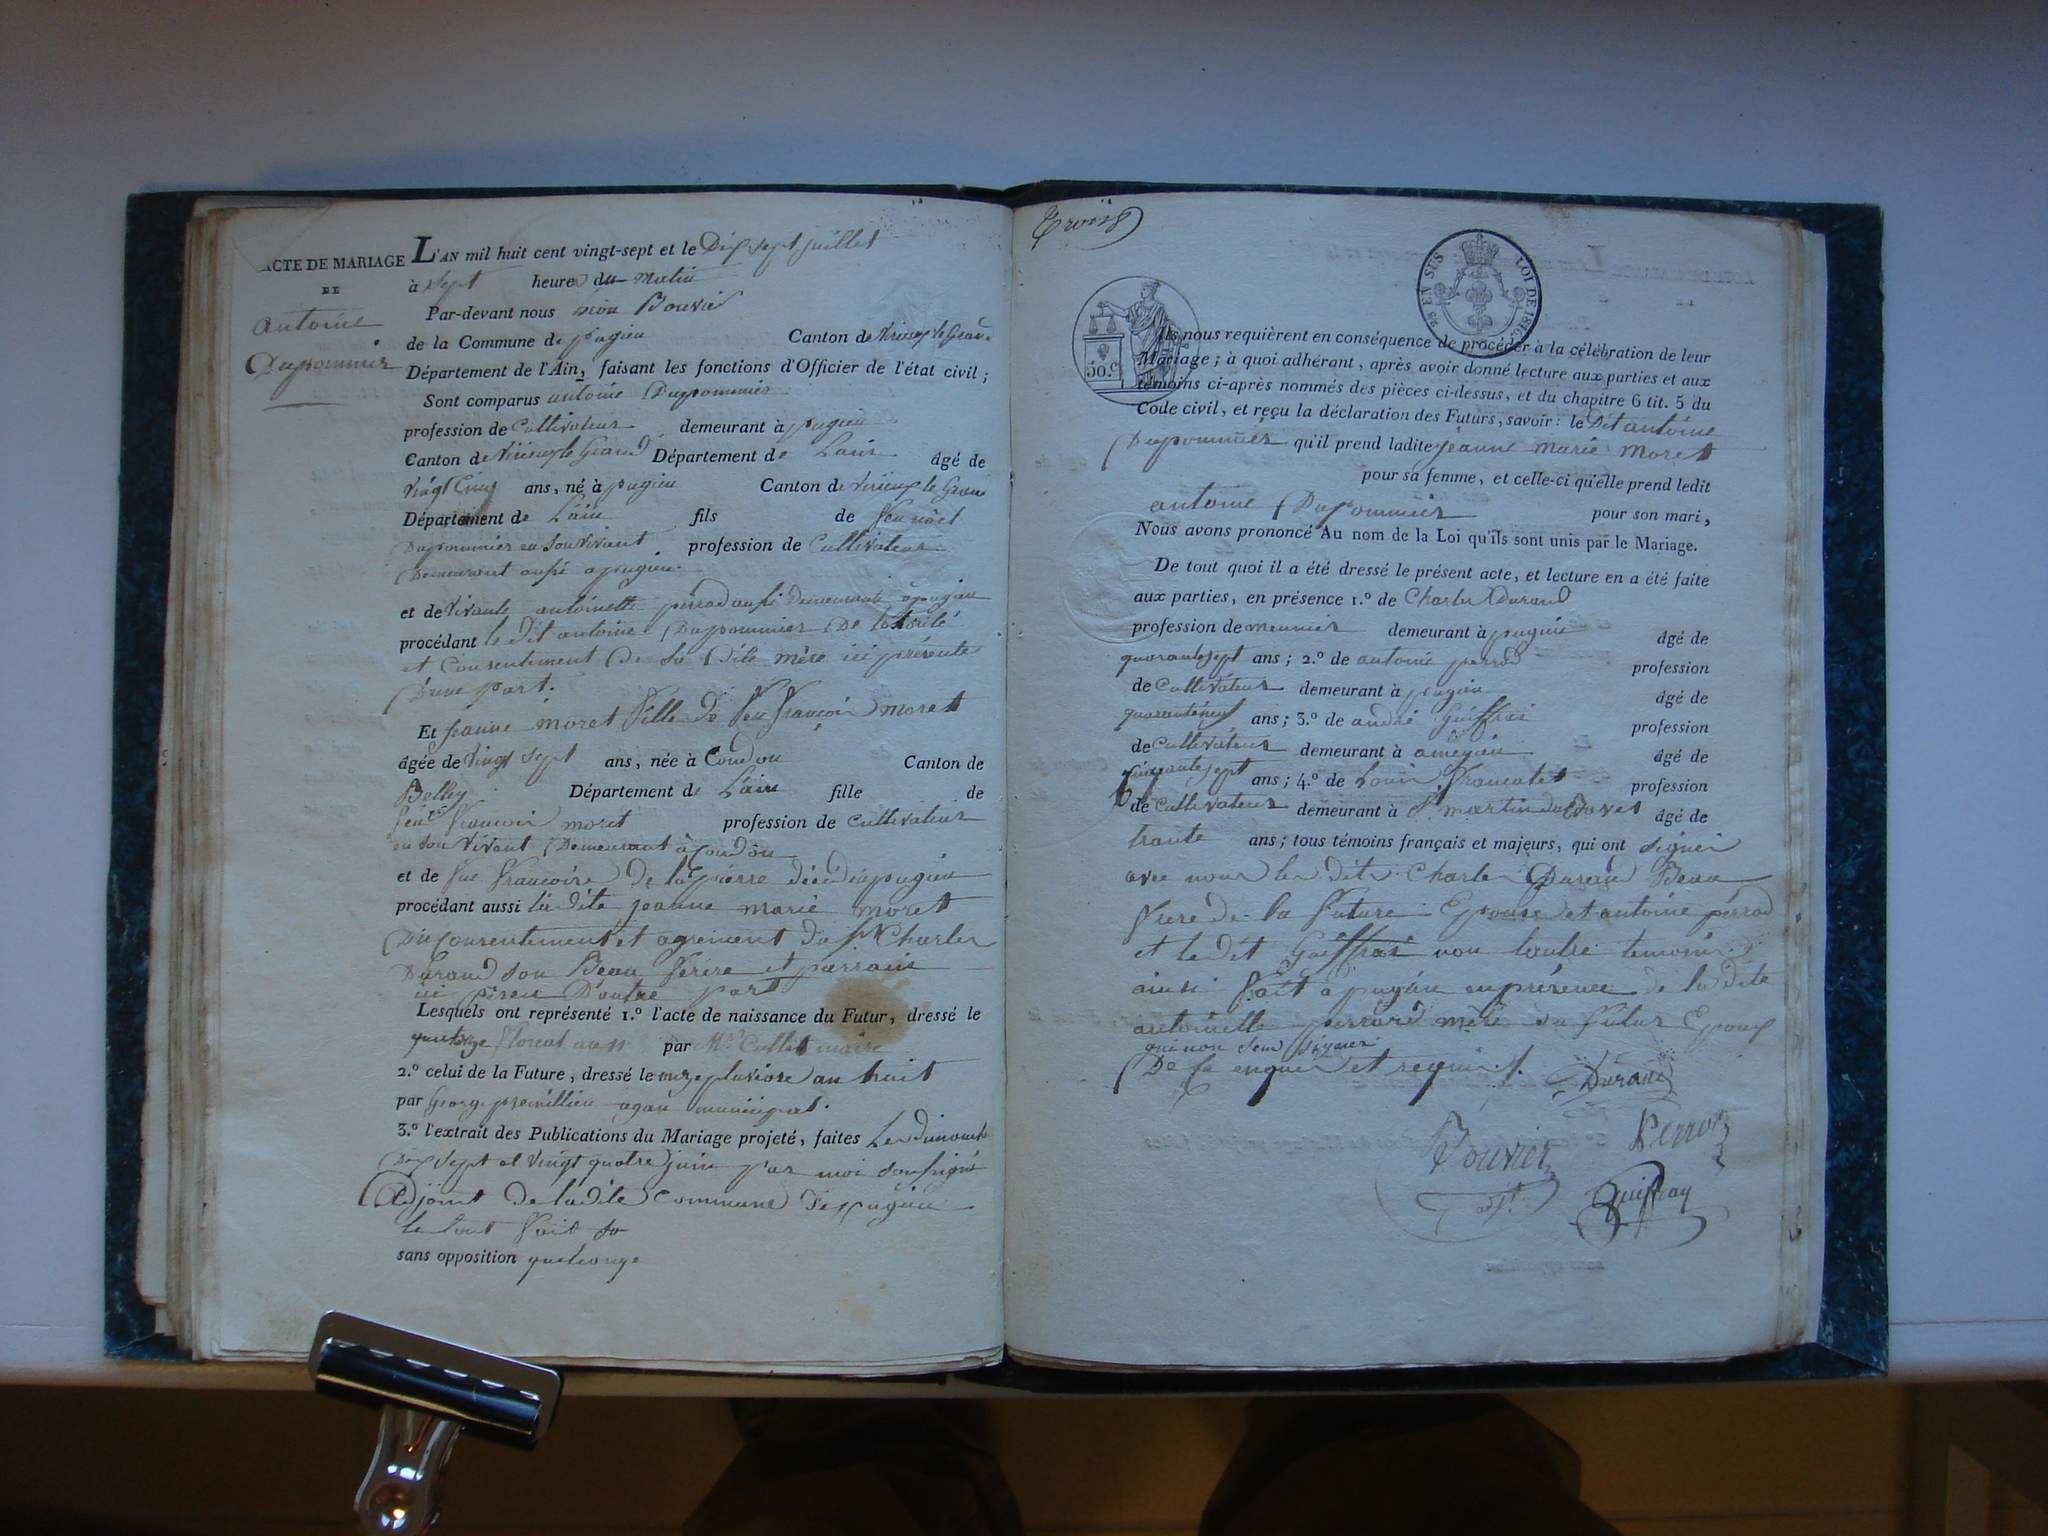 ACTE DE MARIAGE
DE
antoine
Dupommier
L'AN mil huit cent vingt-sept et le Dix sept juillet
à sept heures du matin
Par-devant nous Bouvier
de la Commune de pugieu Canton de Virieux le Grand
Département de l'Ain, faisant les fonctions d'Officier de l'état civil ;
Sont comparus antoine Dupommier
profession de Cultivateur demeurant à pugieu
Canton de Virieux le Grand Département de Lain âgé de
vingt Cinq ans, né à pugieu Canton de Virieux le Grand
Département de Lain fils de feu
Dupommier en son vivant profession de Cultivateur
Demeurant aussi a pugieu.
et de vivante antoinette perrod aussi Demeurante a pugieu
procédant le dit antoine Dupommier De
et Consentement De sa Dite mère ici présente
D'une part.
Et jeanne moret fille de feu francois moret
âgée de vingt sept ans, née à Condon Canton de
Belley Département de Lain fille de
feu francois moret profession de cultivateur
en son vivant Demeurant à Condon
et de feue francoise De la pierre décédé a pugieu
procédant aussi la dite jeanne marie moret
Du Consentement et agrement du Sr Charles
Durand son Beau frere et parrain
ici D'autre part
Lesquels ont représenté 1.º l'acte de naissance du Futur, dressé le
quatorze floreal par Mr Collet maire
2.º celui de la Future, dressé le onze pluviose an huit
par George agent municipal.
3.º l'extrait des Publications du Mariage projeté, faites Les dimanches
Dix sept et vingt quatre juin par moi soussigné
adjoint de la dite commune de pugieu
le tout fait
sans opposition quelconque
Trois
25 EN SUS LOI DE 1816.
50.c
Ils nous requièrent en conséquence de procéder à la célébration de leur
Mariage ; à quoi adhérant, après avoir donné lecture aux parties et aux
témoins ci-après nommés des pièces ci-dessus, et du chapitre 6 tit. 5 du
Code civil, et reçu la déclaration des Futurs, savoir : le Dit antoine
Dupommier qu'il prend ladite jeanne marie moret
pour sa femme, et celle-ci qu'elle prend ledit
antoine Dupommier pour son mari,
Nous avons prononcé Au nom de la Loi qu'ils sont unis par le Mariage.
De tout quoi il a été dressé le présent acte, et lecture en a été faite
aux parties, en présence 1.º de Charles Durand
profession de meunier demeurant à pugieu âgé de
quarante sept ans ; 2.º de antoine perrod profession
de Cultivateur demeurant à pugieu âgé de
ans ; 3.º de andré Guiffrai profession
de Cultivateur demeurant à ameyzieu âgé de
cinquante sept ans ; 4.º de Louis profession
de Cultivateur demeurant à St martin de Bavel âgé de
trante ans ; tous témoins français et majeurs, qui ont signer
avec nous les dits Charles Durand Beau
frere de la future Epouse et antoine perrod
et le dit Guiffrai non lautre temoin
ainsi fait a pugieu en présence de la dite
antoinette perrard mere du futur Epoux
qui non seu signer
De ce enquis et requis.
Durand
Bouvier
Perrod
adjt
Guiffray